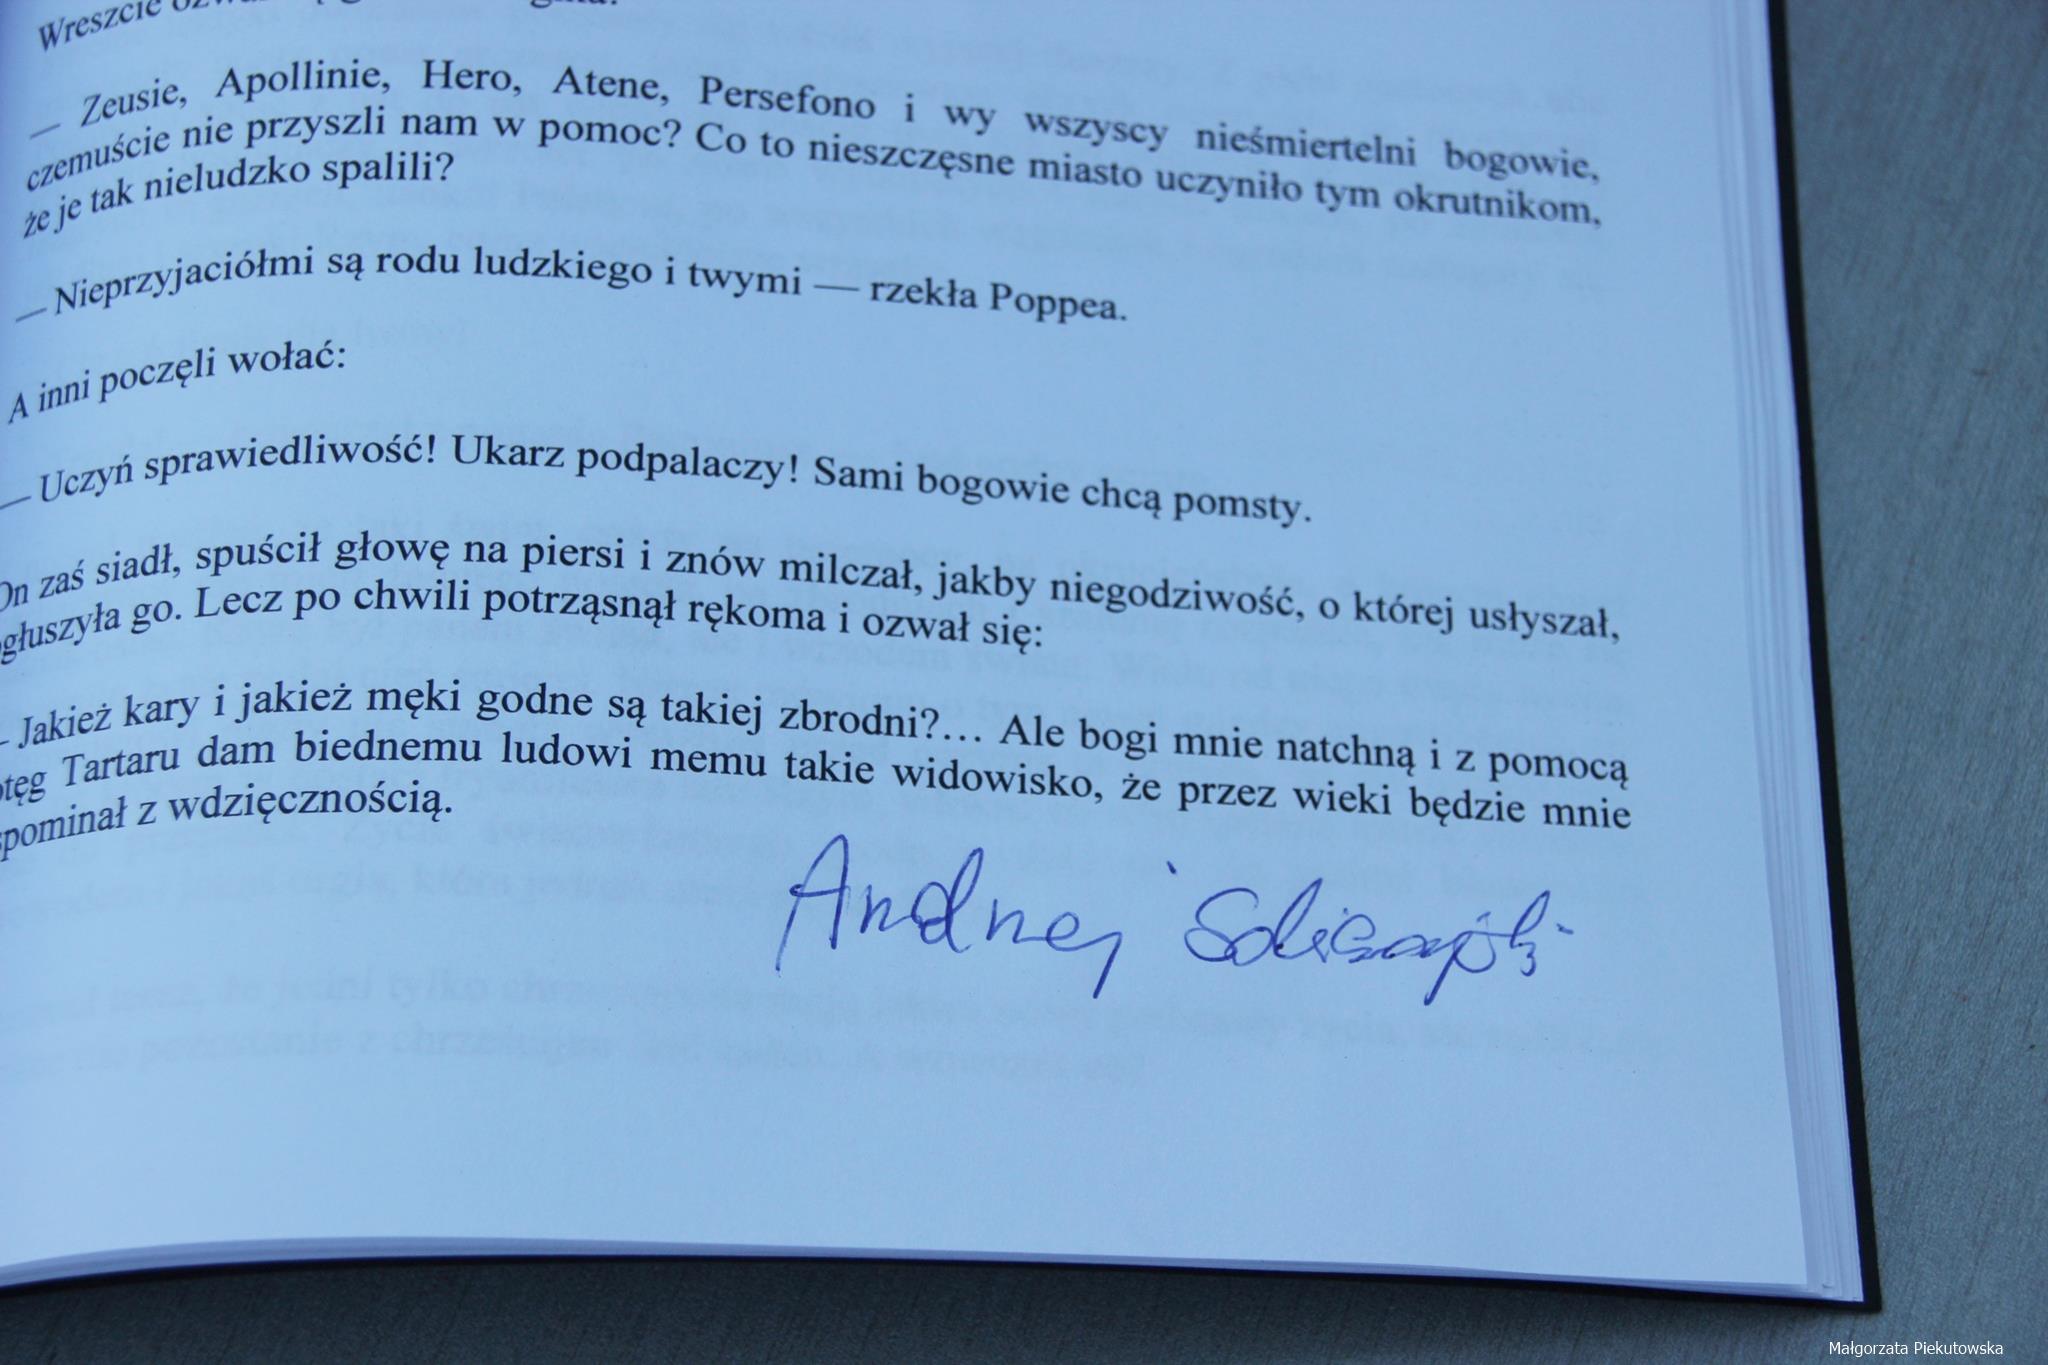 Wreszcie
— Zeusie, Apollinie, Hero, Atene, Persefono i wy wszyscy nieśmiertelni bogowie,
czemuście nie przyszli nam w pomoc? Co to nieszczęsne miasto uczyniło tym okrutnikom,
że je tak nieludzko spalili?
— Nieprzyjaciółmi są rodu ludzkiego i twymi — rzekła Poppea.
A inni poczęli wołać:
— Uczyń sprawiedliwość! Ukarz podpalaczy! Sami bogowie chcą pomsty.
On zaś siadł, spuścił głowę na piersi i znów milczał, jakby niegodziwość, o której usłyszał,
głuszyła go. Lecz po chwili potrząsnął rękoma i ozwał się:
— Jakież kary i jakież męki godne są takiej zbrodni?… Ale bogi mnie natchną i z pomocą
otęg Tartaru dam biednemu ludowi memu takie widowisko, że przez wieki będzie mnie
spominał z wdzięcznością.
Andrzej
Małgorzata Piekutowska